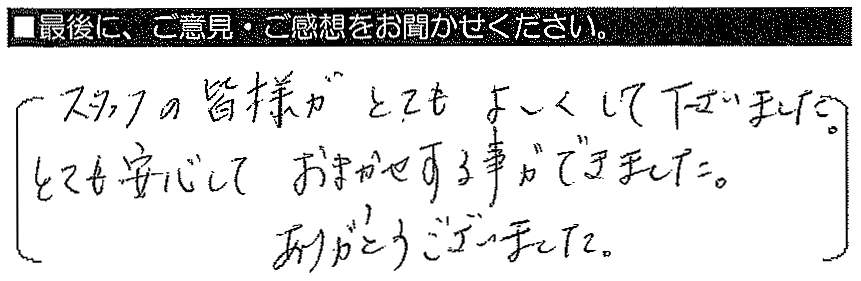 ■最後に、ご意見・ご感想をお聞かせください。
スタッフの皆様がとてもよくして下さいました。
とても安心しておまかせする事ができました。
ありがとうございました。